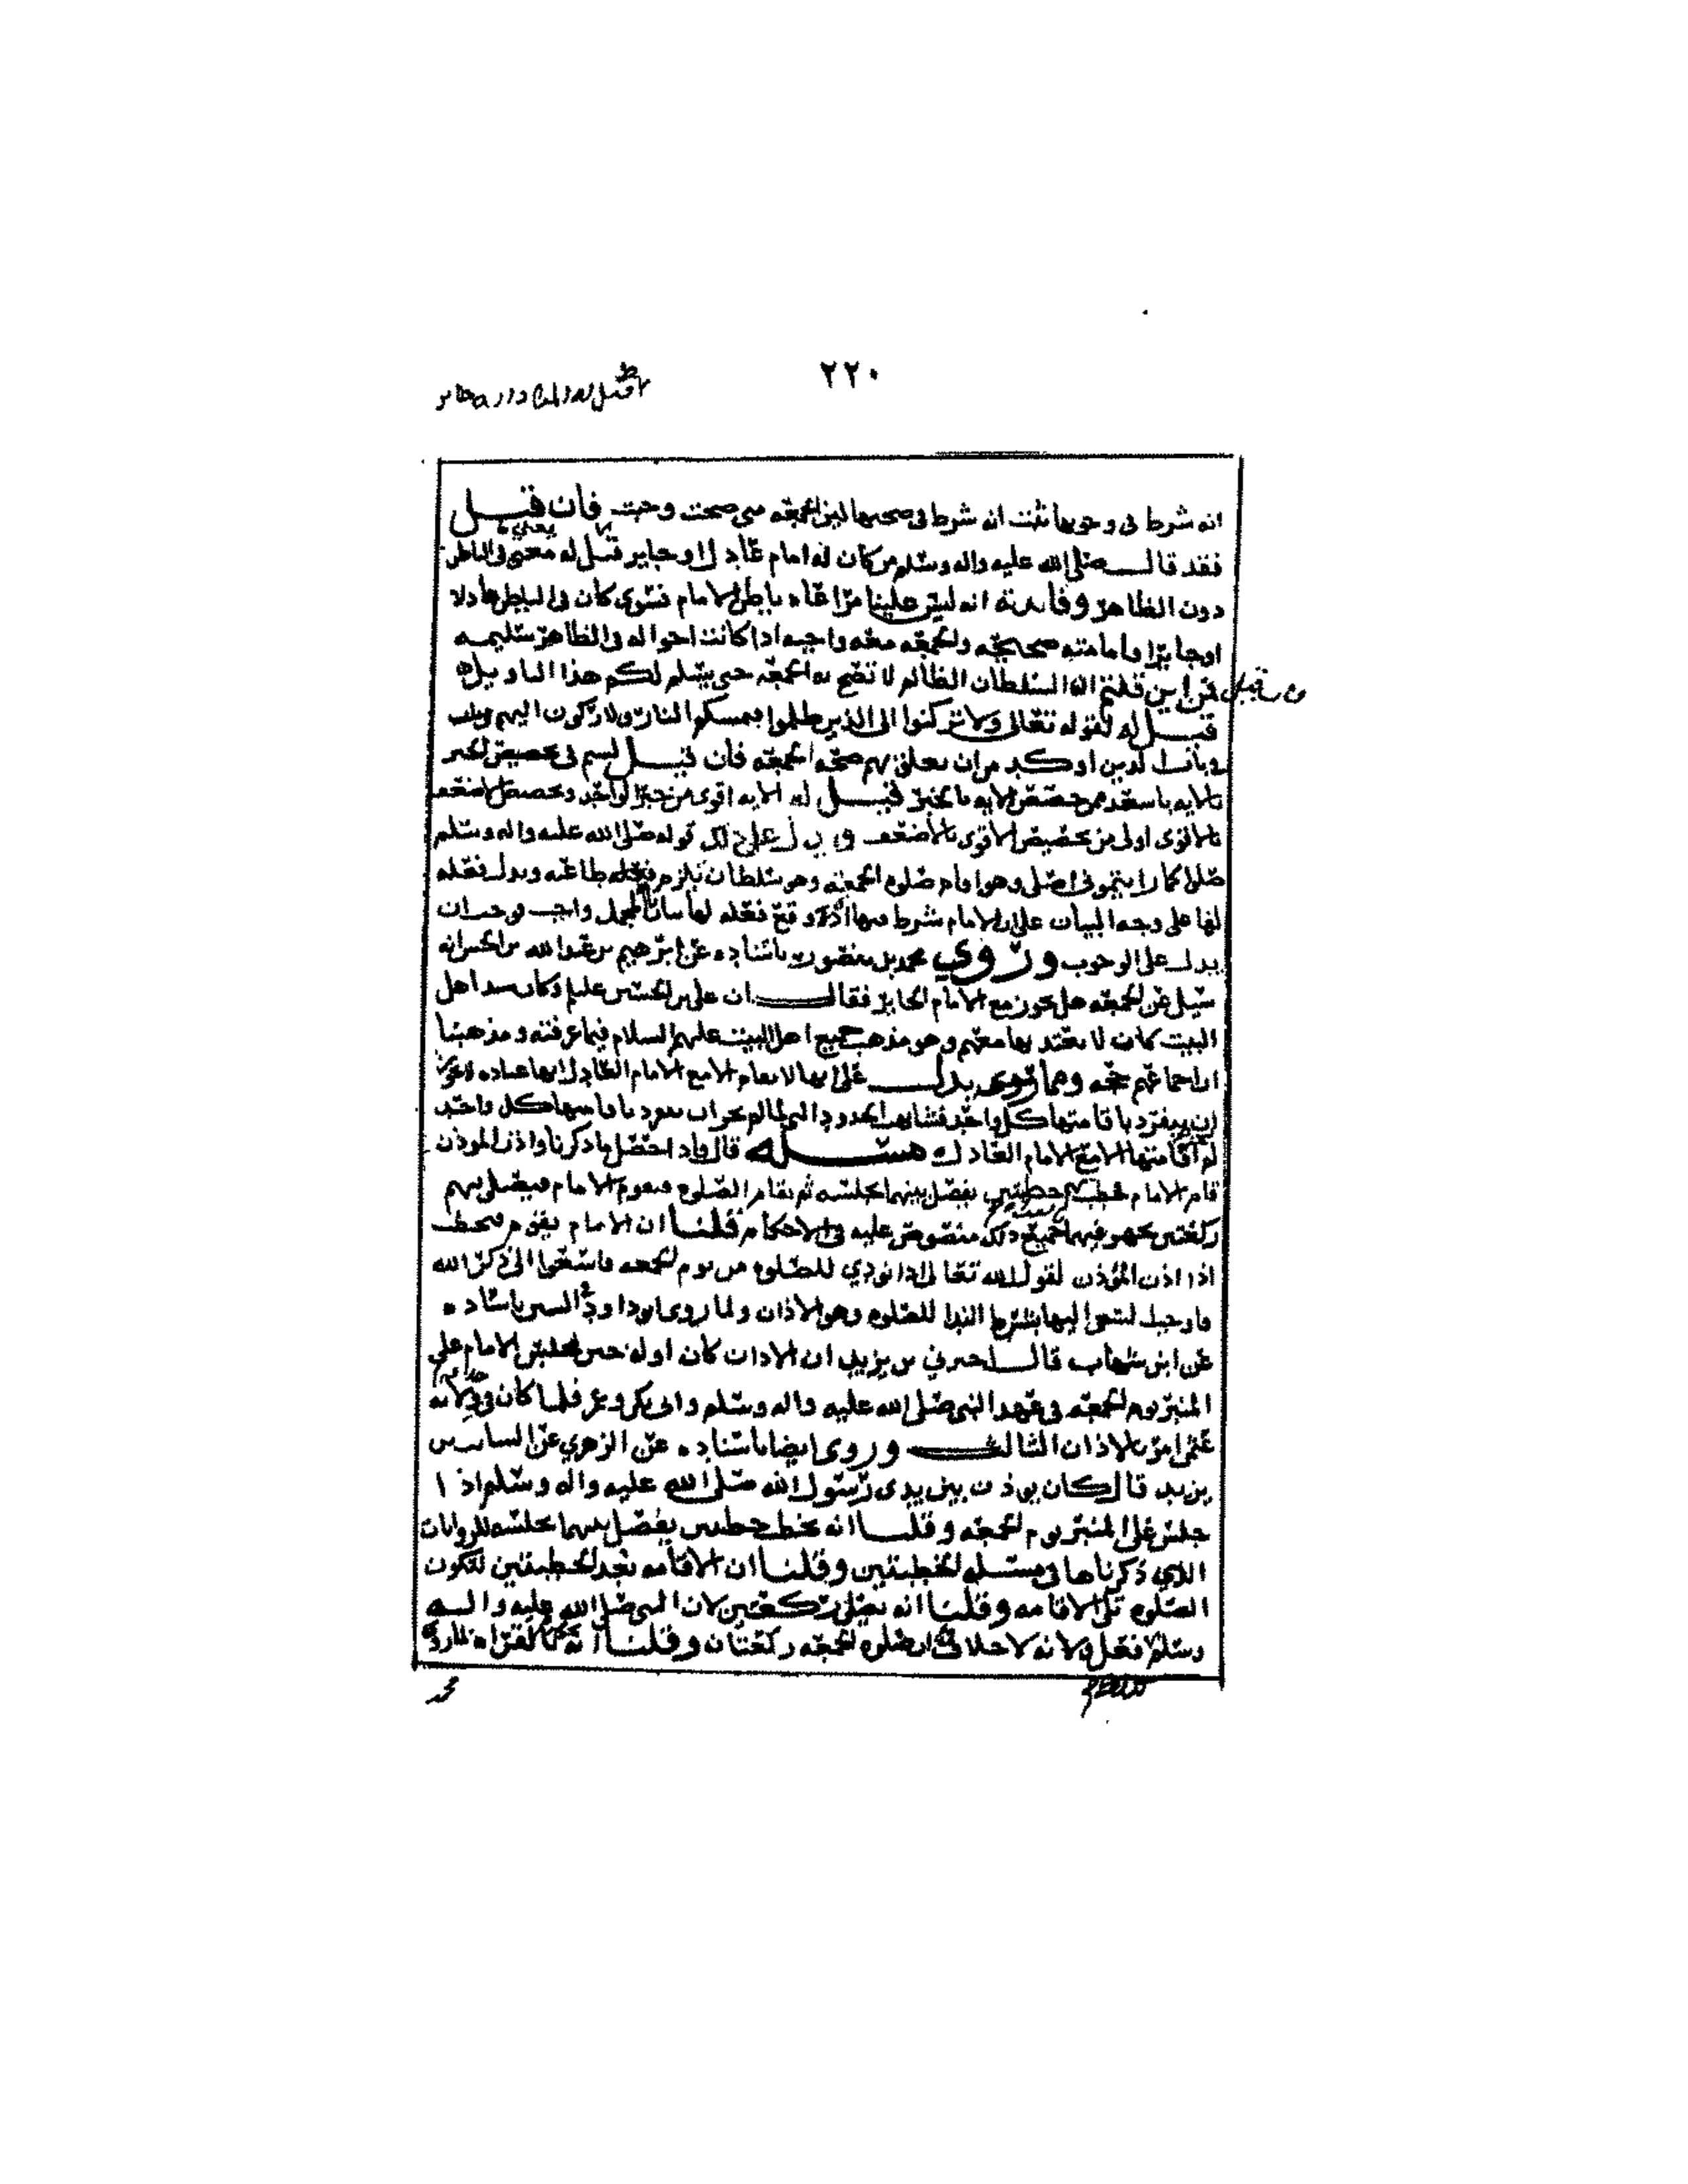 ٢٢٠
انه شرط في وجوبها ثبت انه شرط في صحتها لان الجمعه متى صحت وجبت فان قيل
فقد قال صلى الله عليه واله وسلم من كان له امام عادل او جاير قيل له معنى في الباطن
دون الظاهر وفايدته انه ليس علينا مراعاه باطن الامام فسوى كان في الباطن عادلا
اوجايرا وامامته صحيحه والجمعه معه واجبه اذا كانت احواله في الظاهر سليمه
من اين قلتم ان السلطان الظالم لا تصح به الجمعه حتى يسلم لكم هذا التاويل
قيل له لقوله تعالى ولا تركنوا الى الذين ظلموا فتمسكم النار ولا ركون اليهم
في باب الدين اوكد من ان تعلق بهم صحه الجمعه فان قيل لستم في تخصيص الخبر
بالايه باسعد ممن خصص الايه بالخبر قيل له الايه اقوى من خبر الواحد وتخصيص الاضعف
بالاقوى اولى من تخصيص الاقوى بالاضعف ويدل على ذلك قوله صلى الله عليه واله وسلم
صلوا كما رايتموني اصلي وهو امام صلوه الجمعه وهو سلطان تلزم طاعته ويدل فعله
لها على وجه البيان على ان الامام شرط فيها اذ وقع فعله لها بيانا لمجمل واجب فوجب ان
يدل على الوجوب وروى محمد بن منصور باسناده عن ابرهيم بن عبدالله بن الحسن انه
سيل عن الجمعه هل تجوز مع الامام الجاير فقال ان علي بن الحسين عليلم وكان سيد اهل
البيت كان لا يعتد بها معهم وهو مذهب جميع اهل البيت عليهم السلام فيما عرفته ومذهبنا
ان اجماعهم حجه ومما يدل على انها لا تقام الا مع الامام العادل انها عباده لا يجوز
ان ينفرد باقامتها كل واحد فشابهت الحدود التي لما لم يجز ان ينفرد باقامتها كل واحد
لم اقامتها الا مع الامام العادل مسئله قال واذا حصل ما ذكرنا واذن الموذن
قام الامام فخطب خطبتين يفصل بينهما بجلسه ثم تقام الصلوه ويقوم الامام فيصلي بهم
ركعتين يجهر فيهما جميع ذلك منصوص عليه في الاحكام قلنا ان الامام يقوم فيخطب
اذا اذن المؤذن لقول الله تعالى اذا نودي للصلوه من يوم الجمعه فاسعوا الى ذكر الله
فاوجب السعي اليها بشرط الندا للصلوه وهو الاذان ولما روى ابو داود في السنن باسناده
عن ابن شهاب قال اخبرني بن يزيد ان الاذان كان اوله حين يجلس الامام على
المنبر يوم الجمعه في عهد النبي صلى الله عليه واله وسلم وابي بكر وعمر فلما كان في خلافه
عثمن امر بالاذان الثالث وروى ايضا باسناده عن الزهري عن السايب بن
يزيد قال كان يوذن بين يدي رسول الله صلى الله عليه واله وسلم اذا
جلس على المنبر يوم الجمعه وقلنا انه يخطب خطبتين يفصل بينهما بجلسه للروايات
الذي ذكرناها في مسئله الخطبتين وقلنا ان الاقامه بعد الخطبتين لتكون
الصلوه تلي الاقامه وقلنا انه يصلي ركعتين لان النبي صلى الله عليه واله
وسلم فعل ولانه لا خلاف ان صلوه الجمعه ركعتان وقلنا انه القراه لما روى
محمد